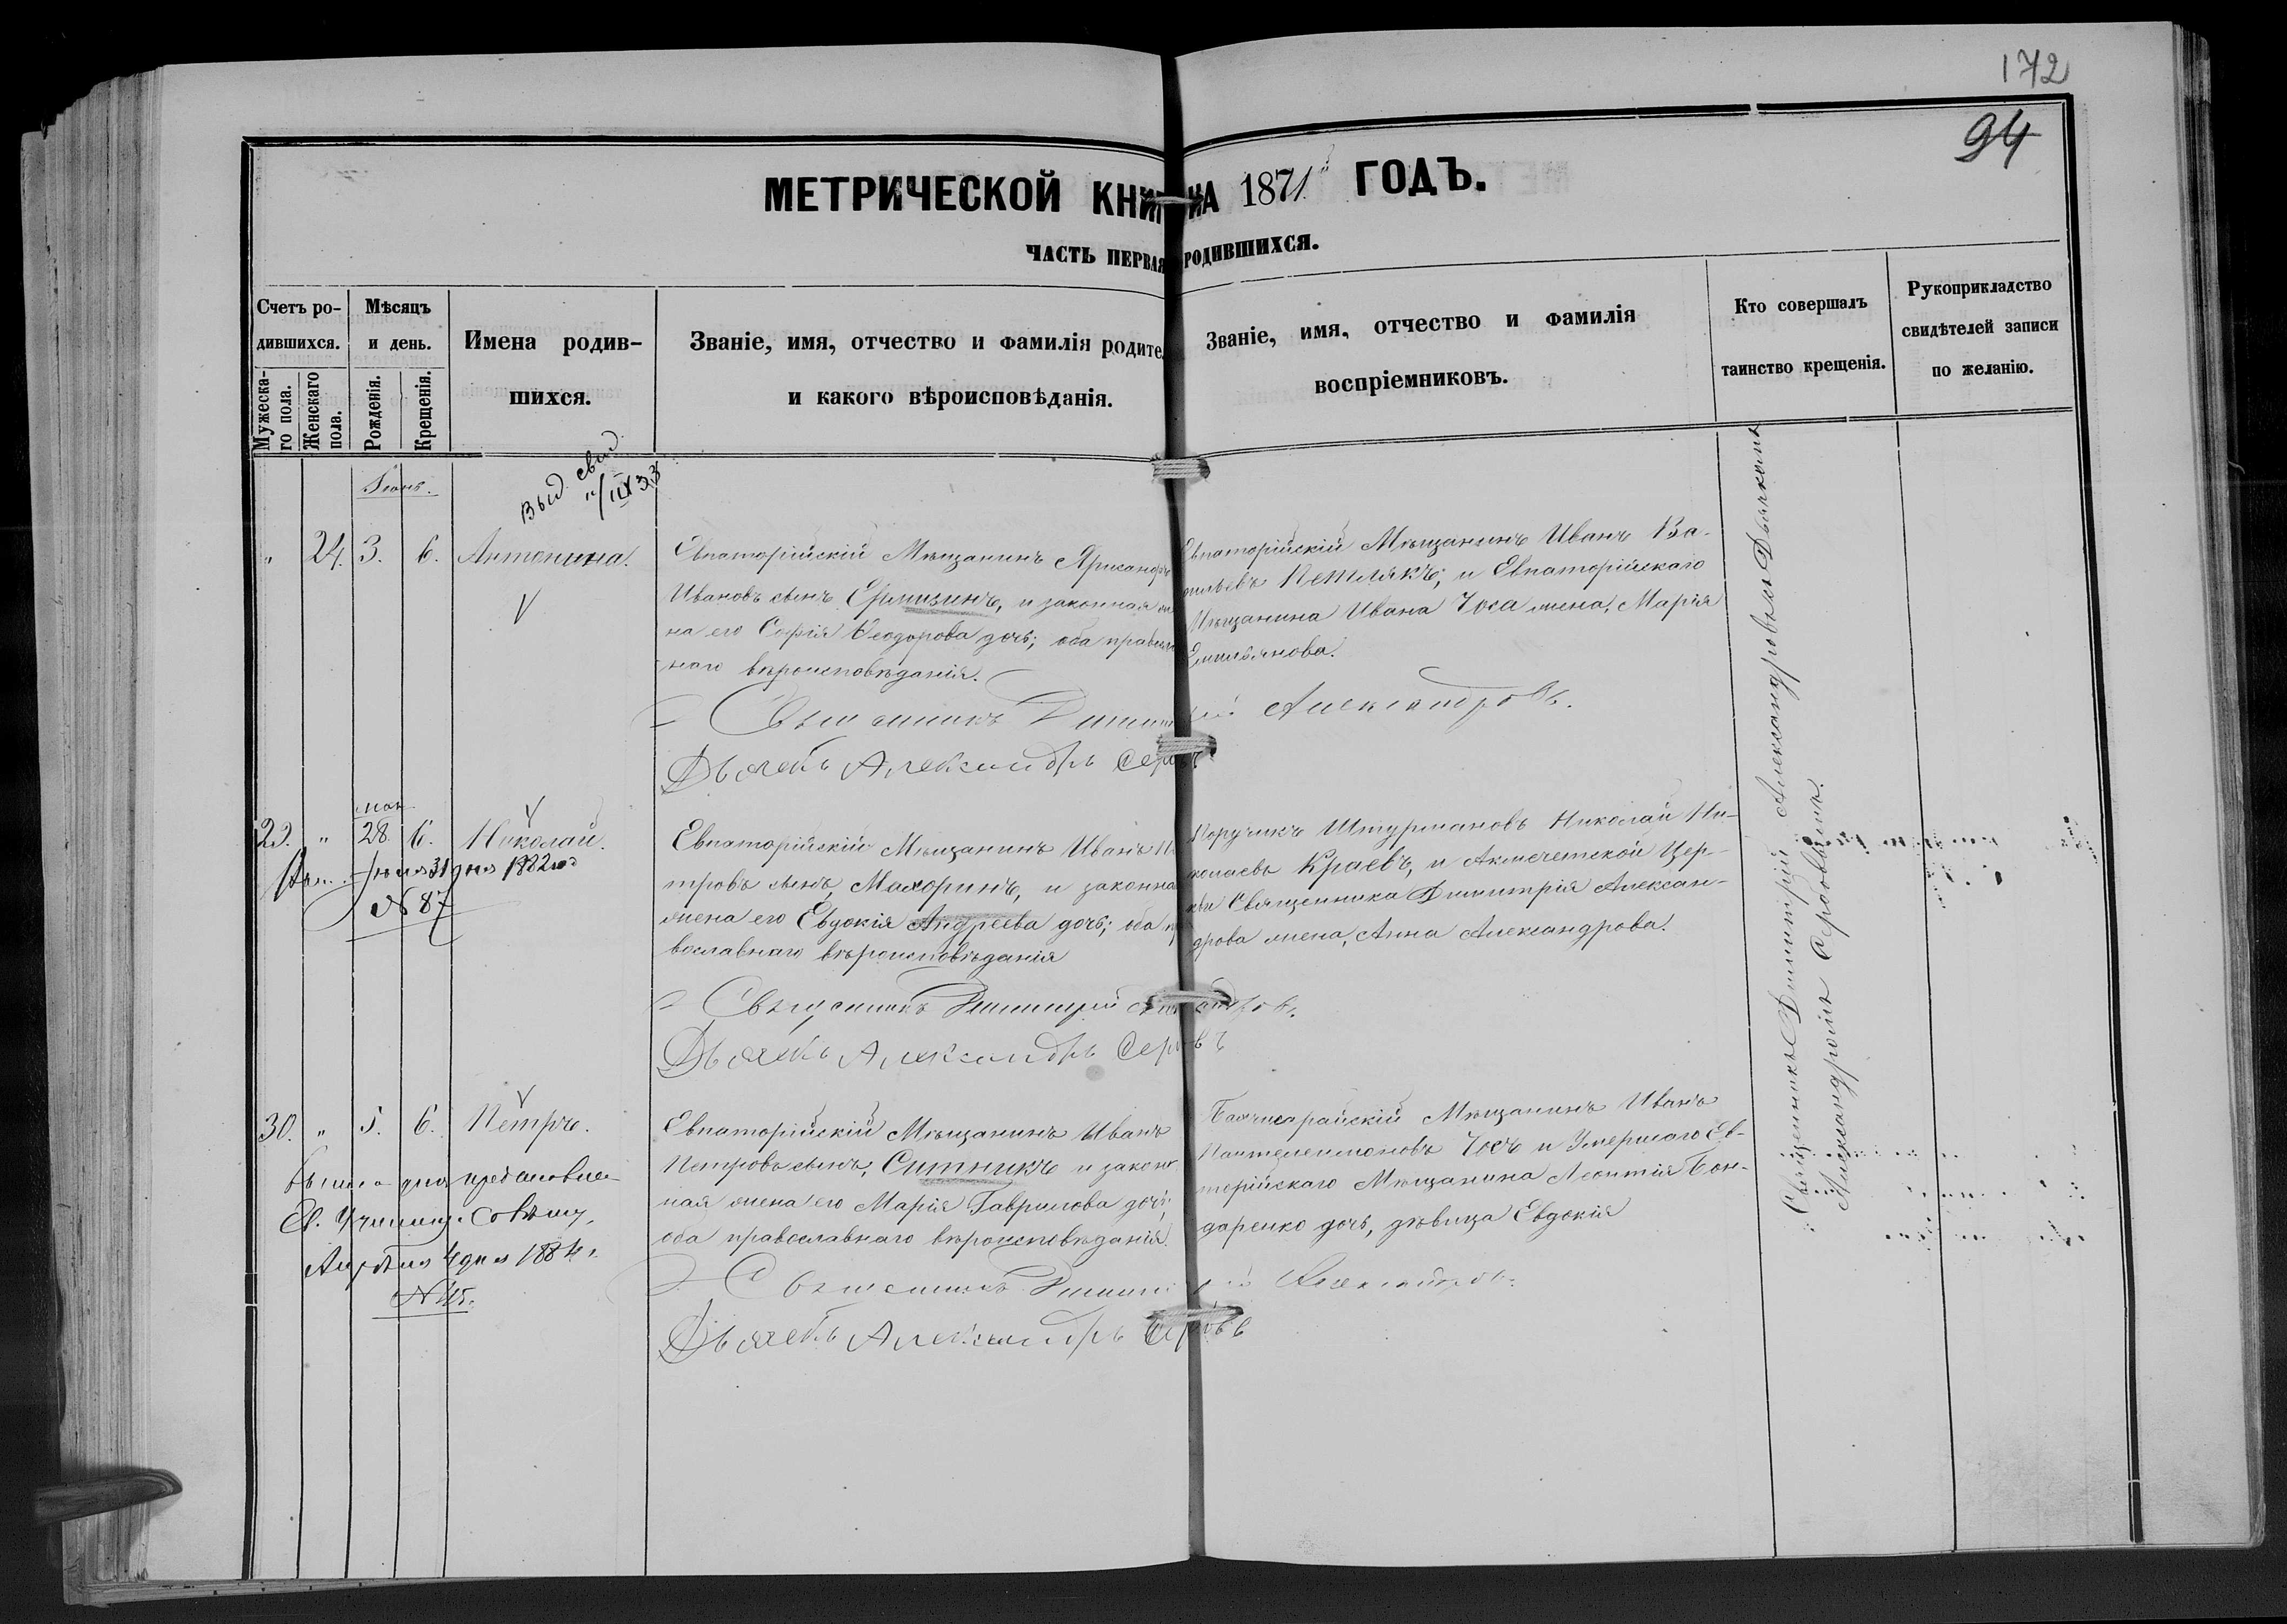 172
94
МЕТРИЧЕСКОЙ КНИГИ НА 1871 ГОДЪ.
ЧАСТЬ ПЕРВАЯ РОДИВШИХСЯ.
Счетъ ро-
дившихся.
Мужеска-
го пола.
Женскаго
пола.
Мѣсяцъ
и день.
Рожденія.
Крещенія.
Имена родив-
шихся.
Званіе, имя, отчество и фамилія родите
и какого вѣроисповѣданія.
Званіе, имя, отчество и фамилія
воспріемниковъ.
Кто совершалъ
таинство крещенія.
Рукоприкладство
свидѣтелей записи
по желанію.
Выд. свид
Іюнь.
" 24. 3. 6. Антонина.
Евпаторійскій Мѣщанинъ
Ивановъ сынъ и законная
на его Софія Ѳеодорова дочь; оба правосла
наго вѣроисповѣданія.
Евпаторійскій Мѣщанинъ Иванъ Ва-
сильевъ Петлякъ; и Евпаторійскаго
Мѣщанина Ивана Чоса жена, Марія
Емильянова.
Священникъ Димитрій Александровъ.
Дьячекъ Александръ Серовъ
мая
29. " 28. 6. Николай.
31 дня 1882 года
№ 87
Евпаторійскій Мѣщанинъ Иванъ Пе
тровъ сынъ, Махоринъ, и законна
жена его Евдокія Андреева дочь; оба пра
вославнаго вѣроисповѣданія
Поручикъ Штурмановъ Николай Ни-
колаевъ Краевъ, и Акмечетской Цер-
кви Священника Димитрія Алексан-
дрова жена, Анна Александрова.
Священникъ Димитрій Александровъ.
Дьячекъ Александръ Серовъ
30. " 5. 6. Петръ.
Ев. Училищ. Совѣту,
4 дня 1884 г.
№ 45.
Евпаторійскій Мѣщанинъ Иванъ
Петровъ сынъ, Ситникъ и закон
ная жена его Марія Гаврилова дочь;
оба православнаго вѣроисповѣданія.
Бахчисарайскій Мѣщанинъ Иванъ
Пантелеимоновъ Чосъ и Умершаго Ев-
торійскаго Мѣщанина Леонтія Бон-
даренко дочь, дѣвица Евдокія
Священникъ Димитрій Александровъ.
Дьячекъ Александръ Серовъ
Священникъ Димитрій Александровъ съ Дьячкомъ
Александромъ Серовымъ.